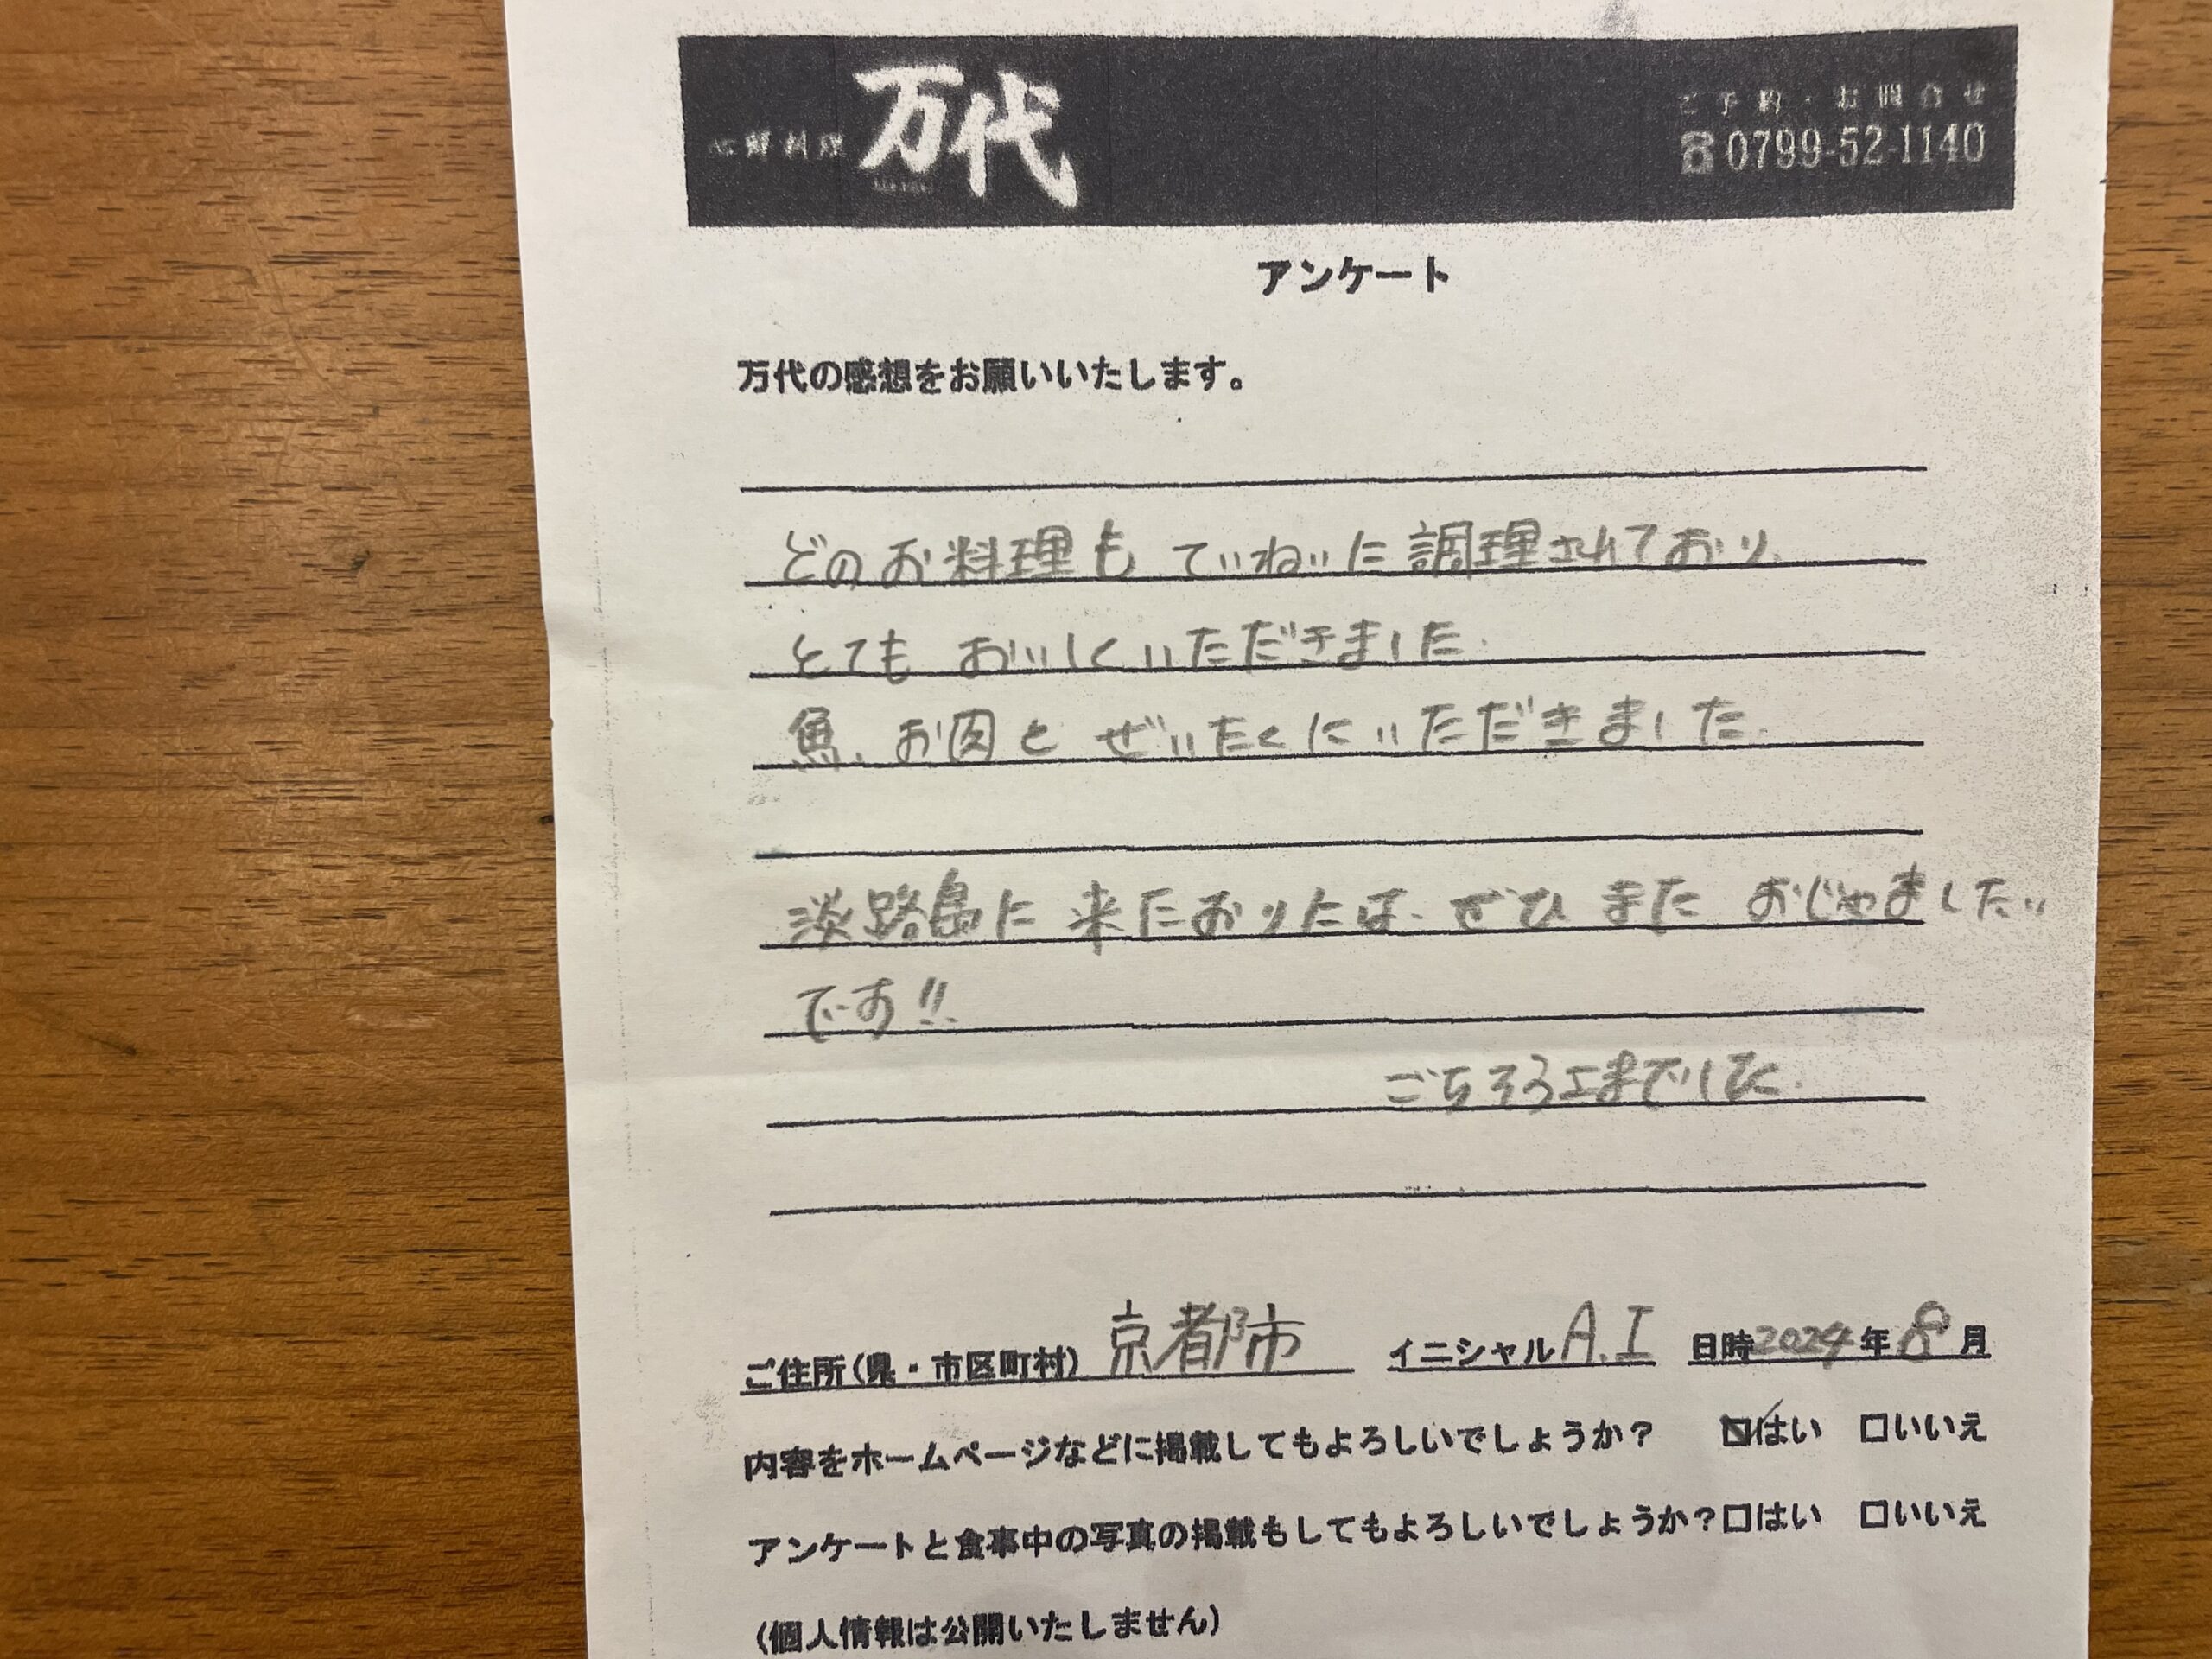 心鮮料理 万代
ご予約・お問合せ
☎0799-52-1140
アンケート
万代の感想をお願いいたします。
どのお料理も ていねいに調理されており、
とても おいしくいただきました。
魚、お肉と ぜいたくにいただきました。
淡路島に来たおりには、ぜひ また おじゃましたい
です!!
ごちそうさまでした。
ご住所(県・市区町村) 京都市 イニシャル A.I 日時2024年 8月
内容をホームページなどに掲載してもよろしいでしょうか? ☑はい □いいえ
アンケートと食事中の写真の掲載もしてもよろしいでしょうか?□はい □いいえ
(個人情報は公開いたしません)